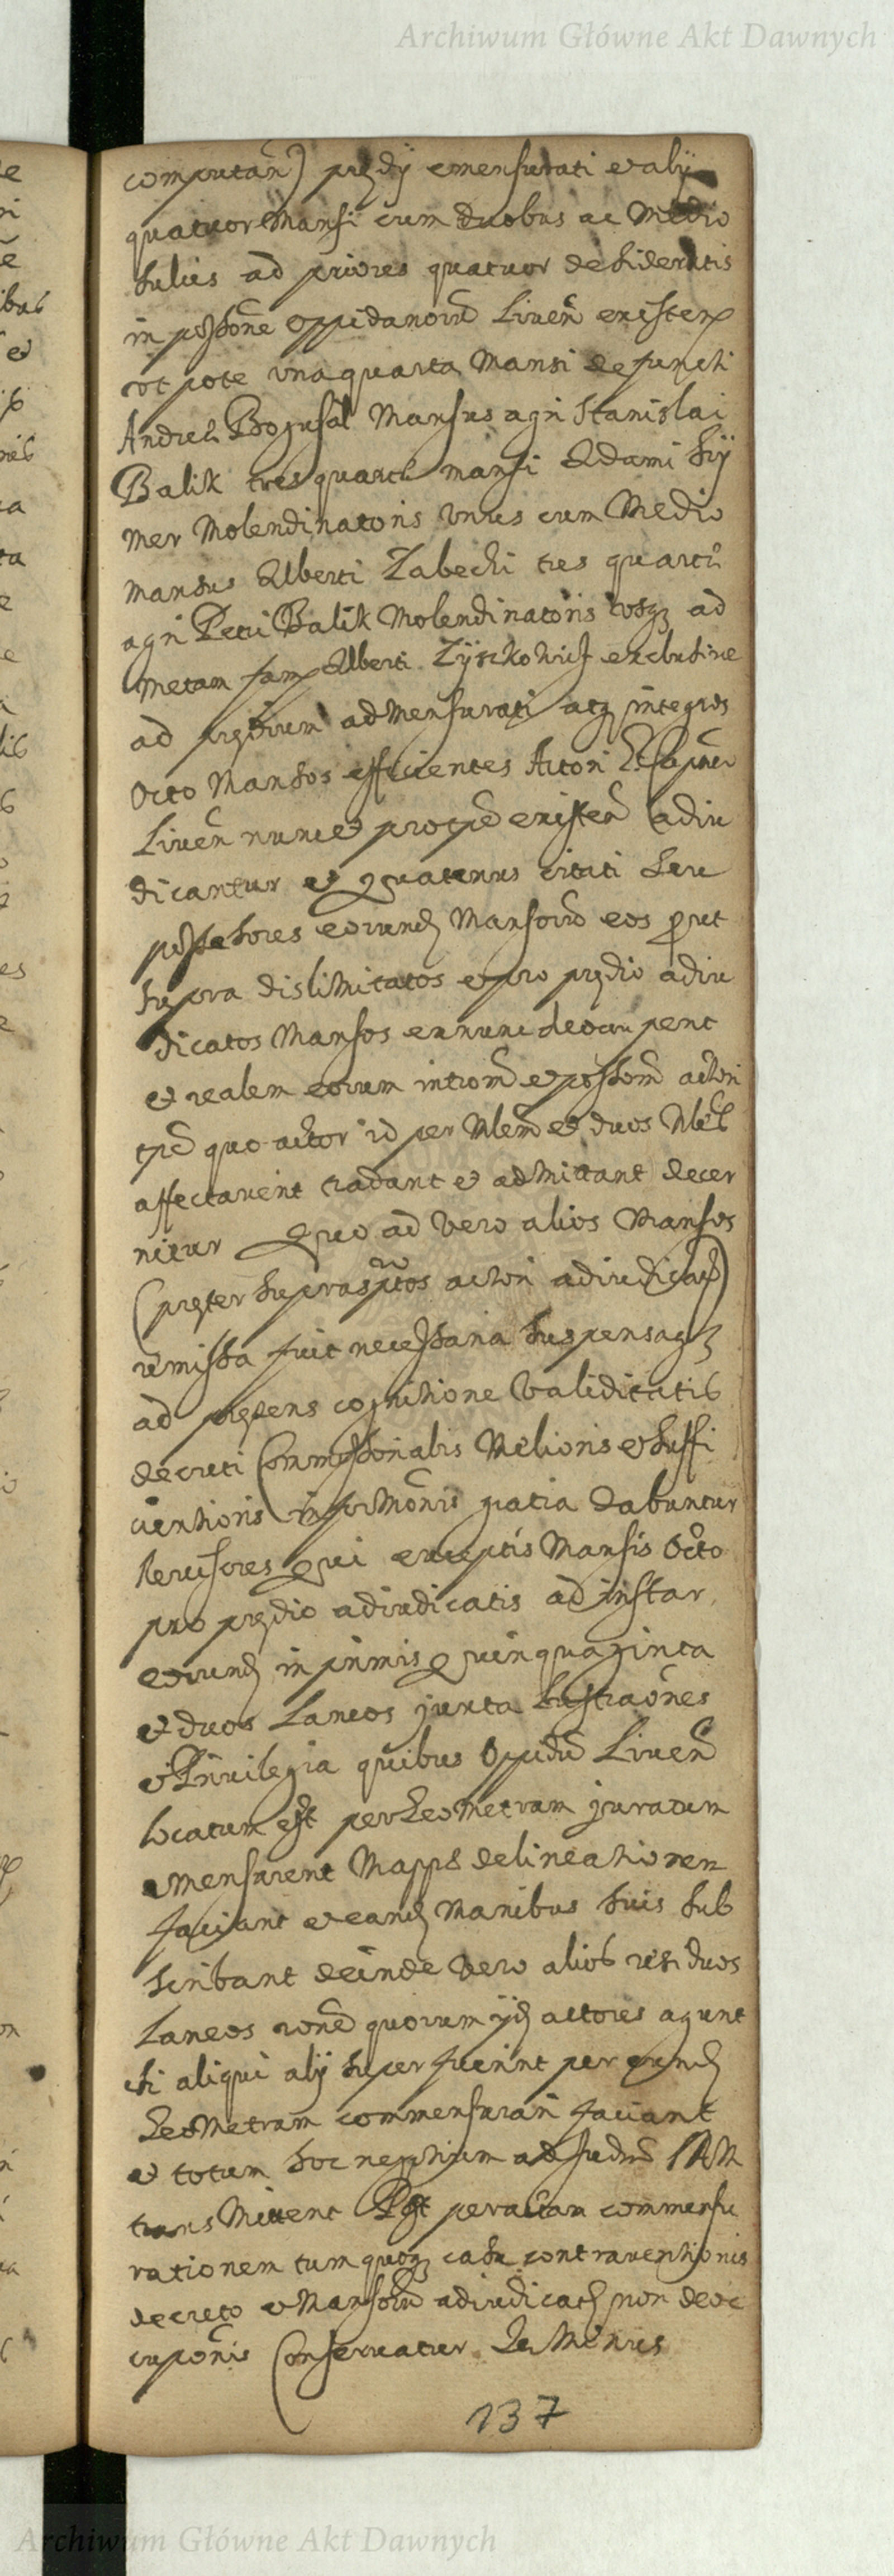 Archiwum Główne Akt Dawnych
computan) prędij emensurati et alij
quatuor Mansi cum duobus ac Medio
sulcis ad priores quatuor desideratis
in possone oppidanorū Liven existen
ut pote una quarta Mansi defuncti
Andreæ Bogusal Mansus agri Stanislai
Balik tres quartæ mansi Adami Sij
mer Molendinatoris unus cum Medio
mansus Alberti Zabecki tres quartæ
agri Petri Balik Molendinatoris usqz ad
Metam fam Alberti Zyszkowicz exclusive
ad prędium admensurati atqz integros
Octo Mansos efficientes Actori et
Liven nunc et pro tpe existen adiu
dicantur et quatenus citati seu
possessores eorund Mansorū eos prout
supra dislimitatos et pro prędio adiu
dicatos Mansos exnunc deoccupent
et realem eorum intromē et possonē actori
tpe quo actor id per Mlem et duos Nbiles
affectaverit tradant et admittant decer
nitur Quo ad vero alios Mansos
(pręter suprasptos actori adiudicat)
remissa fuit necessaria suspensaqz
ad pręsens cognitione validitatis
decreti Commissorialis Melioris et suffi
cientioris informōnis gratia dabuntur
Revisores qui exceptis Mansis Octo
pro prędio adiudicatis ad instar
eorund in primis quinquaginta
et duos Laneos juxta Lustraōnes
et Privilegia quibus Oppidū Liven
locatum est per Geometram juratum
emensurent Mappæ delineationem
faciant et eand Manibus suis sub
scribant deinde vero alios residuos
Laneos rone quorum ijd actores agunt
si aliqui alij superfuerint per eund
Geometram commensurari faciant
et totum hoc negotium ad Judm SRM
transmittent Post peractam commensu
rationem tum quoqz casu contraventionis
decreto et Mansorū adiudicat non deoc
cupōnis Conservatur Terminus
137
Archiwum Główne Akt Dawnych